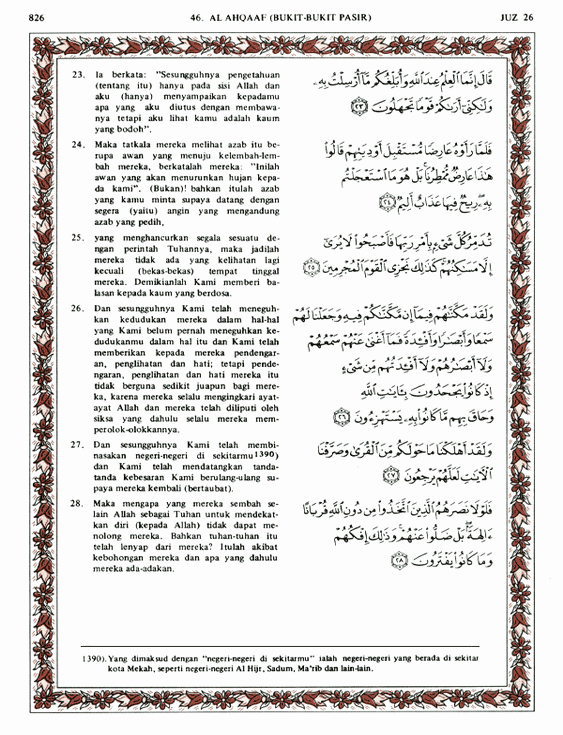 826 46. AL AHQAAF (BUKIT-BUKIT PASIR) JUZ 26
23. Ia berkata: "Sesungguhnya pengetahuan
(tentang itu) hanya pada sisi Allah dan
aku (hanya) menyampaikan kepadamu
apa yang aku diutus dengan membawa-
nya tetapi aku lihat kamu adalah kaum
yang bodoh".
قَالَ إِنَّمَا ٱلْعِلْمُ عِندَ ٱللَّهِ وَأُبَلِّغُكُم مَّآ أُرْسِلْتُ بِهِۦ
وَلَٰكِنِّىٓ أَرَىٰكُمْ قَوْمًا تَجْهَلُونَ ﴿٢٣﴾
24. Maka tatkala mereka melihat azab itu be-
rupa awan yang menuju kelembah-lem-
bah mereka, berkatalah mereka: "Inilah
awan yang akan menurunkan hujan kepa-
da kami". (Bukan)! bahkan itulah azab
yang kamu minta supaya datang dengan
segera (yaitu) angin yang mengandung
azab yang pedih,
فَلَمَّا رَأَوْهُ عَارِضًا مُّسْتَقْبِلَ أَوْدِيَتِهِمْ قَالُوا۟
هَٰذَا عَارِضٌ مُّمْطِرُنَا ۚ بَلْ هُوَ مَا ٱسْتَعْجَلْتُم
بِهِۦ ۖ رِيحٌ فِيهَا عَذَابٌ أَلِيمٌ ﴿٢٤﴾
25. yang menghancurkan segala sesuatu de-
ngan perintah Tuhannya, maka jadilah
mereka tidak ada yang kelihatan lagi
kecuali (bekas-bekas) tempat tinggal
mereka. Demikianlah Kami memberi ba-
lasan kepada kaum yang berdosa.
تُدَمِّرُ كُلَّ شَىْءٍۭ بِأَمْرِ رَبِّهَا فَأَصْبَحُوا۟ لَا يُرَىٰٓ
إِلَّا مَسَٰكِنُهُمْ ۚ كَذَٰلِكَ نَجْزِى ٱلْقَوْمَ ٱلْمُجْرِمِينَ ﴿٢٥﴾
26. Dan sesungguhnya Kami telah meneguh-
kan kedudukan mereka dalam hal-hal
yang Kami belum pernah meneguhkan ke-
dudukanmu dalam hal itu dan Kami telah
memberikan kepada mereka pendengar-
an, penglihatan dan hati; tetapi pende-
ngaran, penglihatan dan hati mereka itu
tidak berguna sedikit juapun bagi mere-
ka, karena mereka selalu mengingkari ayat-
ayat Allah dan mereka telah diliputi oleh
siksa yang dahulu selalu mereka mem-
perolok-olokkannya.
وَلَقَدْ مَكَّنَّٰهُمْ فِيمَآ إِن مَّكَّنَّٰكُمْ فِيهِ وَجَعَلْنَا لَهُمْ
سَمْعًا وَأَبْصَٰرًا وَأَفْـِٔدَةً فَمَآ أَغْنَىٰ عَنْهُمْ سَمْعُهُمْ
وَلَآ أَبْصَٰرُهُمْ وَلَآ أَفْـِٔدَتُهُم مِّن شَىْءٍ
إِذْ كَانُوا۟ يَجْحَدُونَ بِـَٔايَٰتِ ٱللَّهِ
وَحَاقَ بِهِم مَّا كَانُوا۟ بِهِۦ يَسْتَهْزِءُونَ ﴿٢٦﴾
27. Dan sesungguhnya Kami telah membi-
nasakan negeri-negeri di sekitarmu1390)
dan Kami telah mendatangkan tanda-
tanda kebesaran Kami berulang-ulang su-
paya mereka kembali (bertaubat).
وَلَقَدْ أَهْلَكْنَا مَا حَوْلَكُم مِّنَ ٱلْقُرَىٰ وَصَرَّفْنَا
ٱلْـَٔايَٰتِ لَعَلَّهُمْ يَرْجِعُونَ ﴿٢٧﴾
28. Maka mengapa yang mereka sembah se-
lain Allah sebagai Tuhan untuk mendekat-
kan diri (kepada Allah) tidak dapat me-
nolong mereka. Bahkan tuhan-tuhan itu
telah lenyap dari mereka? Itulah akibat
kebohongan mereka dan apa yang dahulu
mereka ada-adakan.
فَلَوْلَا نَصَرَهُمُ ٱلَّذِينَ ٱتَّخَذُوا۟ مِن دُونِ ٱللَّهِ قُرْبَانًا
ءَالِهَةًۢ ۖ بَلْ ضَلُّوا۟ عَنْهُمْ ۚ وَذَٰلِكَ إِفْكُهُمْ
وَمَا كَانُوا۟ يَفْتَرُونَ ﴿٢٨﴾
1390). Yang dimaksud dengan "negeri-negeri di sekitarmu" ialah negeri-negeri yang berada di sekitar
kota Mekah, seperti negeri-negeri Al Hijr, Sadum, Ma'rib dan lain-lain.